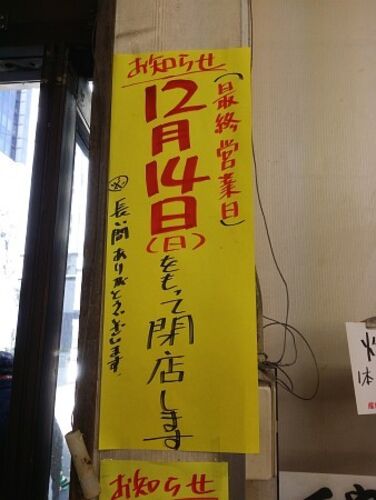 お知らせ
(最終営業日)
12月14日(日)をもって閉店します
長い間ありがとうございます。
お知らせ
1本